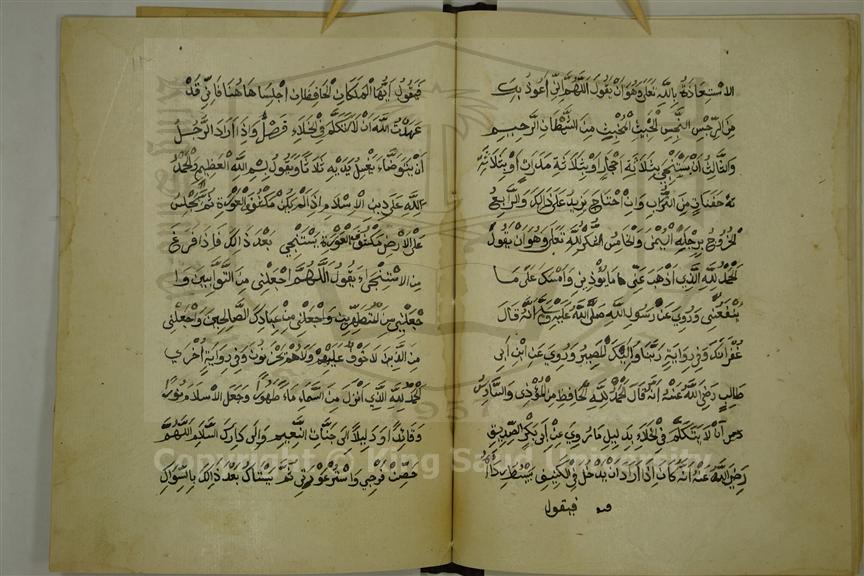 الاستعاذة بالله تعلى وهو ان يقول اللهم اني اعوذ بك
من الرجس النجس الخبيث المخبث من الشيطان الرجيم
والثالث ان يستنجي بثلاثة احجار او بثلاثة مدرات او بثلاثة
حفنات من التراب وان احتاج يزيد على ذالك والرابع
الخروج برجله اليمنى والخامس الشكر لله تعلى وهو ان يقول
الحمد لله الذي اذهب عني ما يؤذيني وامسك على ما
ينفعني وروي عن رسول الله صلى الله عليه وسلم انه قال
غفرانك وفي رواية ربنا واليك المصير وروي عن ابن ابى
طالب رضي الله عنه انه قال الحمد لله الحافظ من المؤذى والسادس
ان لا يتكلم في الخلاء بدليل ما روي عن ابى بكر الصديق
رضي الله عنه انه كان اذا اراد ان يدخل في الكنيف يبسط رداءه
فيقول
فيقول ايها الملكان الحافظان اجلسا هاهنا فاني قد
عهدت الله ان لا اتكلم في الخلاء فصل واذا اراد الرجل
ان يتوضاء يغسل يديه ثلاثا ويقول بسم الله العظيم والحمد
لله على دين الاسلام اذا لم يكن مكشوف العورة ثم يجلس
على الارض مكشوف العورة يستنجي بعد ذالك فاذا فرغ
من الاستنجاء يقول اللهم اجعلني من التوابين وا
جعلني من المتطهرين واجعلني من عبادك الصالحين واجعلني
من الذين لا خوف عليهم ولا هم يحزنون وفي رواية اخرى
الحمد لله الذي انزل من السماء ماء طهورا وجعل الاسلام نورا
وقائدا ودليلا الى جنات النعيم والى دارك السلام اللهم
حصن فرجي واستر عورتي ثم يستاك بعد ذالك بالسواك
Copyright © King Saud University
1957